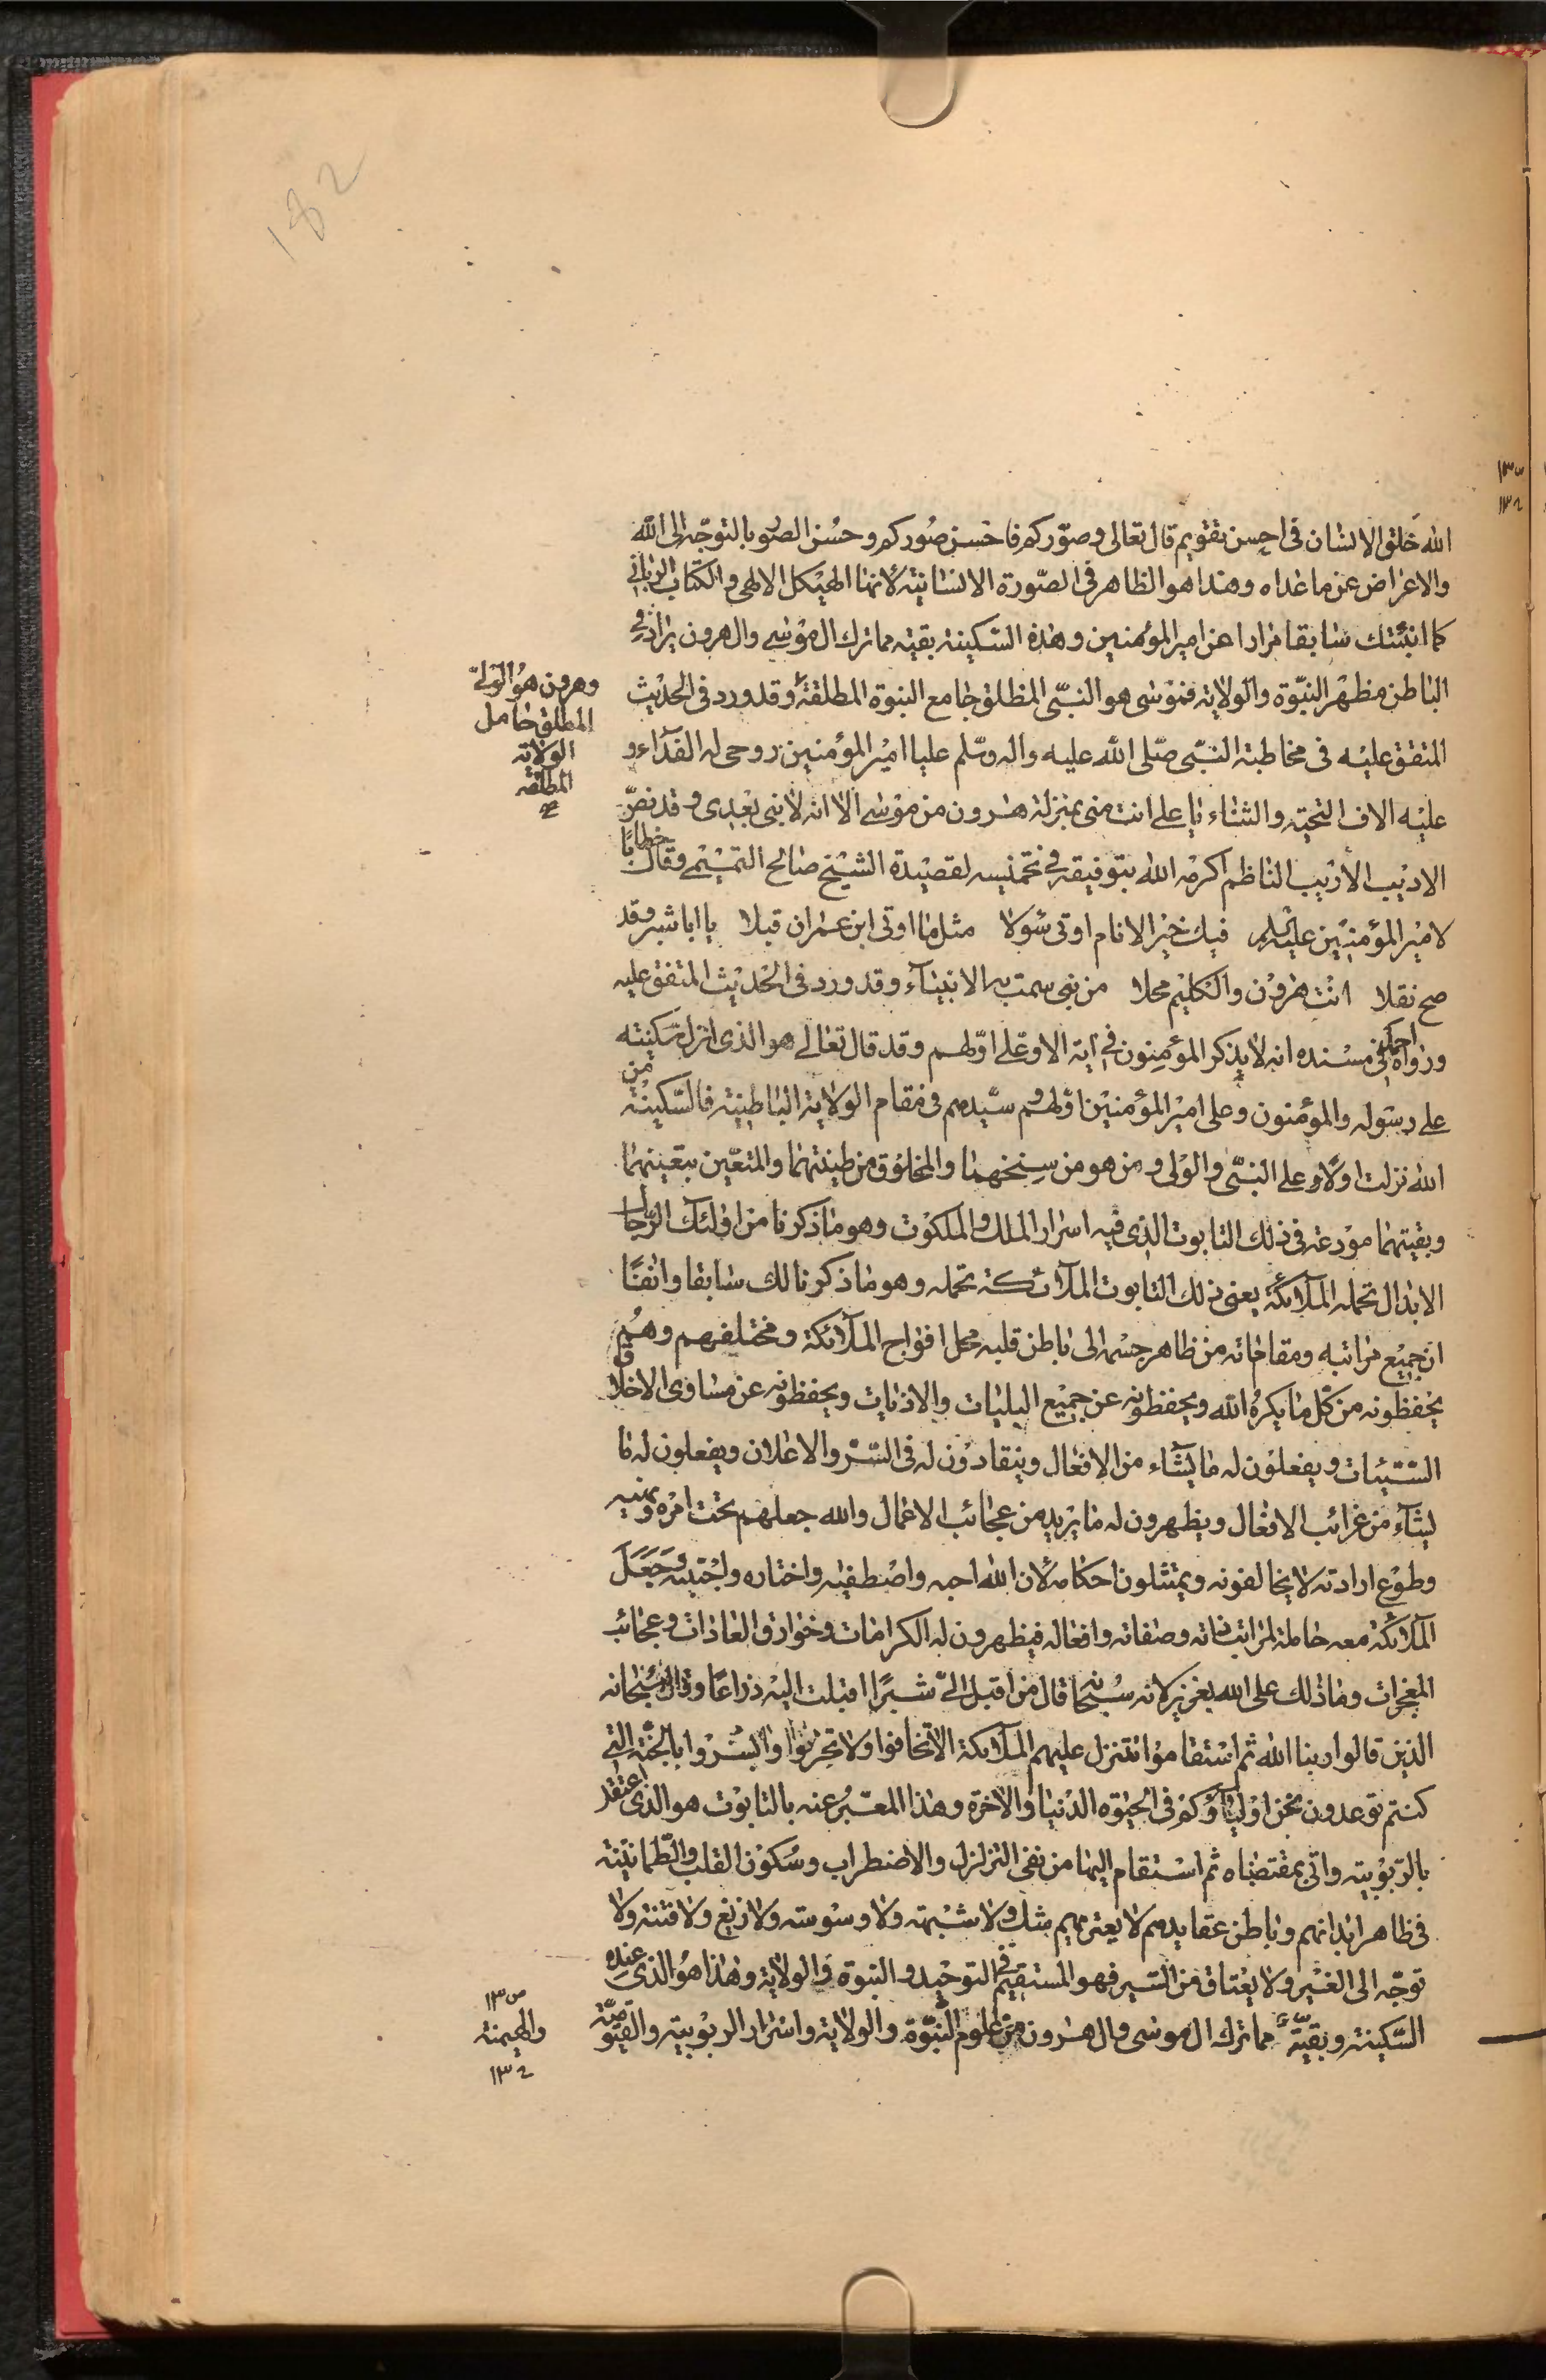 182
الله خلق الانسان فى احسن تقويم قال تعالى وصوّركم فاحسن صُوركم وحسُن الصُور بالتوجّه الى الله
والاعراض عن ما عداه وهذا هو الظاهر فى الصّورة الانسانيّة لانها الهيكل الالهى والكتاب الربانى
كما انبئتك سابقا مرارا عن امير المؤمنين وهذه السّكينة بقيّة مما ترك ال موسى وال هرون يراد فى
الباطن مظهر النبّوة والولاية فموسى هو النّبىّ المطلق جامع النبوة المطلقة وقد ورد فى الحديث
وهرون هو الولىّ
المطلق حامل
الولاية
المطلقة
المتفق عليْه فى مخاطبة النّبىّ صلى الله عليه واله وسّلم عليا امير المؤمنين روحى له الفدآء و
عليْه الاف التحيّة والثناء يا على انت منى بمنزلة هرون من موسى الا انه لا نبى بعدى وقد نصّ
الاديْب الأريب الناظم اكرمه الله بتوفيقه فى تخميسه لقصيْدة الشيْخ صالح التميْمى وقال خطابًا
لاميْر المؤمنيْن عليه السلام فيك خيْر الانام اوتى سُولا مثل ما اوتى ابن عمران قبلا يا ابا شبر وقد
صح نقلا انْت هٰرون والكليْم محلا من نبى سمت به الانبيآء وقد ورد فى الحديْث المتفق عليه
ورواه احمد فى مسْنده انه لا يذكر المؤمنون فى اية الا وعلى اوّلهم وقد قال تعالى هو الذى انزل سكينته
على رسوله والمؤمنون وعلى اميْر المؤمنيْن اوّلهم و سيّدهم فى مقام الولاية الباطنيّة فالسّكينْة من
الله نزلت اولًا على النبّى والولى و من هو من سِنخهما والمخلوق من طينتهما والمتعيّن بتعينهما
وبقيتهما مودعة فى ذلك التابوت الذى فيه اسرار الملك والملكوت وهو ما ذكرنا من اولئك الرّجال
الابدال تحمله الملائكة يعنى ذلك التابوت الملآئكة تحمله وهو ما ذكرنا لك سابقا وانفًا
ان جميْع مراتبه ومقاماته من ظاهر جسْمه الى باطن قلبه محل افواج الملآئكة ومختلفهم وهُم
يحفظونه من كل ما يكرهُ الله ويحفظونه عن جميْع البليات والاذيات ويحفظونه عن مساوى الاخلاق
السّيئات ويفعلوْن له ما يشآء من الافعال وينقادوْن له فى السّرْ والاعلان ويفعلون له ما
يشآء من غرائب الافعال ويظهرون له ما يريْد من عجائب الاعمال والله جعلهم تحت امْره ونهيه
وطوْع ارادته لا يخالفونه ويمتثلون احكامه لان الله احبه واصْطفيٰه واختاره واجْتبيٰه وجَعَلَ
الملآئكة معه حاملة لمراتب ذاته وصفاته وافعاله فيظهرون له الكرامات وخوارق العادات وعجائب
المعجزات وما ذلك على الله بعزيز لانه سُبْحانه قال من اقبل الىّ شبرًا اقبلت اليْه ذراعًا وقال سُبْحانه
الذين قالوا ربنا الله ثم اسْتقاموْا تتنزل عليهم الملآئكة الّا تخافوا ولا تحزنوا وابْشرْوا بالجنّة التى
كنتم توعدون نحن اوْليآؤكم فى الحيوٰة الدنيا والاخرة وهٰذا المعبّرُ عنه بالتابوْت هو الذى اعتقد
بالرّبوْبية واتى بمقتضاه ثم اسْتقام اليها من نفى التزلزل والاضطراب وسُكوْن القلب والطمانيْنة
فى ظاهر ابدانهم وباطن عقايدهم لا يعتريهم شك ولا شبْهة ولا وسْوسة ولا زيغ ولا فتنة ولا
توجّه الى الغيْر ولا يعْتاق من السّير فهو المستقيْم فى التوحيد و النبوة والولاية وهٰذا هوُ الذى عنده
السّكينة وبقيّة مما ترك ال موسى وال هٰرون من علوم النبوّة والولاية واسرار الربوبية والقيّوميّة
والهيمنة
١٣٤